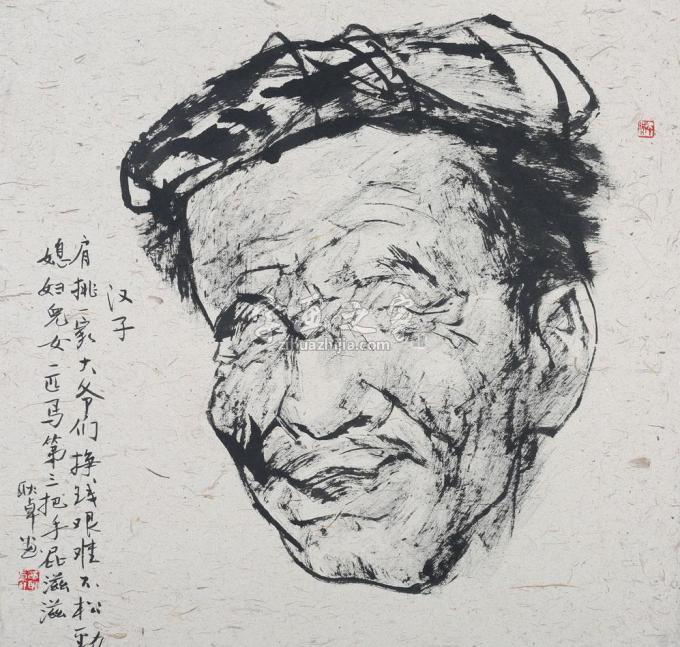 汉子
肩挑一家大爷们挣钱艰难不松劲
媳妇儿女一匹马第三把手屁滋滋
耿卓画
字画之家
zihuazhijia.com